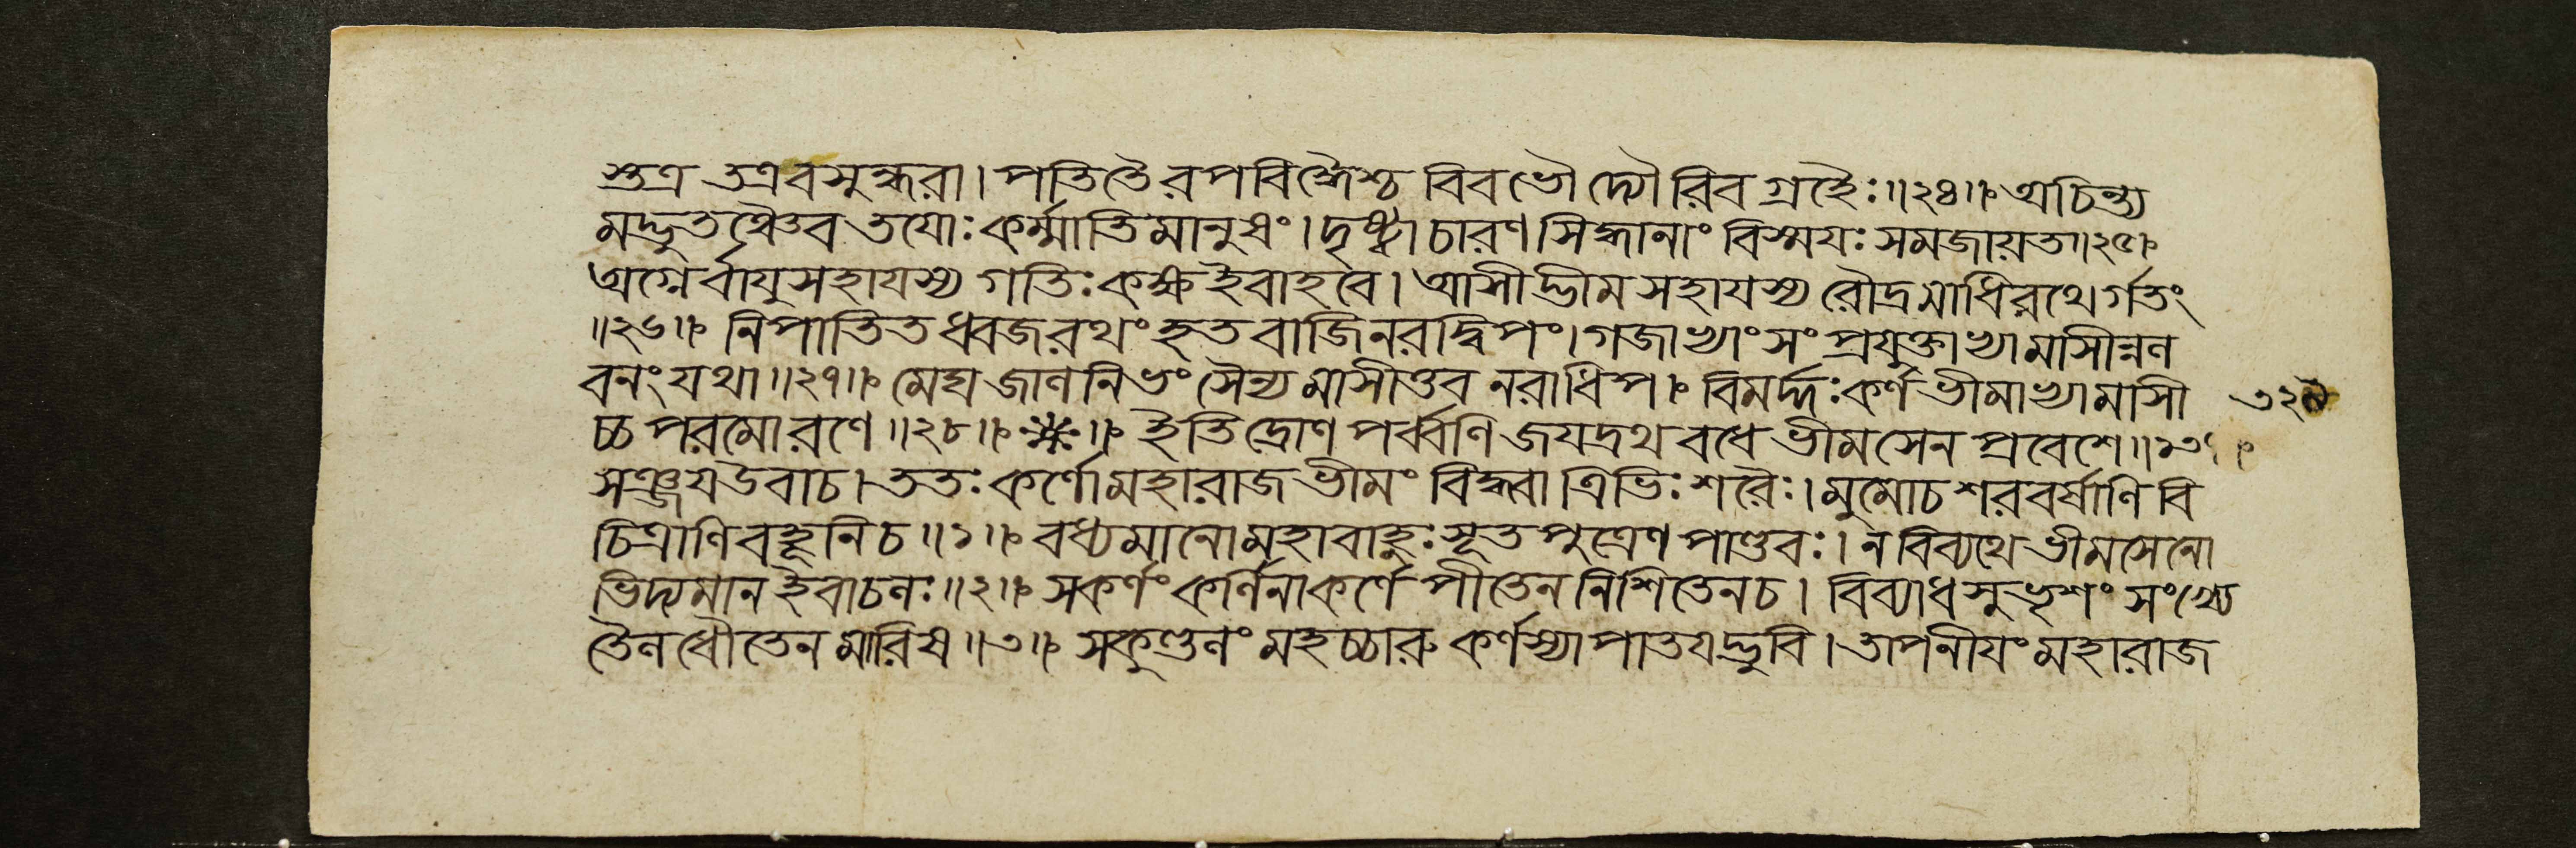 স্তত্র তত্র বসুন্ধরা। পতিতৈরপবিদ্ধৈশ্চ বিবভৌ দ্যৌরিব গ্রহৈঃ॥২৪॥ অচিন্ত্য
মদ্ভুতঞ্চৈব তযোঃ কর্ম্মাতিমানুষং। দৃষ্ট্বা চারণসিদ্ধানাং বিস্ময়ঃ সমজায়ত॥২৫॥
অগ্নের্বাযুসহাযস্য গতিঃ কক্ষ ইবাহবে। আসীদ্ভীমসহাযস্য রৌদ্রমাধিরথের্গতং
॥২৬॥ নিপাতিতধ্বজরথং হতবাজিনরদ্বিপং। গজাভ্যাং সংপ্রযুক্তাভ্যামাসীন্নল
বনং যথা॥২৭॥ মেঘজালনিভং সৈন্যমাসীত্তব নরাধিপ। বিমর্দ্দঃ কর্ণভীমাভ্যামাসী
৩২৯
চ্চ পরমো রণে॥২৮॥ ইতি দ্রোণপর্ব্বণি জযদ্রথবধে ভীমসেনপ্রবেশে॥
সঞ্জয উবাচ। ততঃ কর্ণো মহারাজ ভীমং বিদ্ধ্বা ত্রিভিঃ শরৈঃ। মুমোচ শরবর্ষাণি বি
চিত্রাণি বহূনি চ॥১॥ বধ্যমানো মহাবাহুঃ সূতপুত্রেণ পাণ্ডবঃ। ন বিব্যথে ভীমসেনো
ভিদ্যমান ইবাচলঃ॥২॥ স কর্ণং কর্ণিনা কর্ণে পীতেন নিশিতেন চ। বিব্যাধ সুভৃশং সংখ্যে
তৈলধৌতেন মারিষ॥৩॥ সকুণ্ডলং মহচ্চারু কর্ণস্যাপাতযদ্ভুবি। তাপনীযং মহারাজ